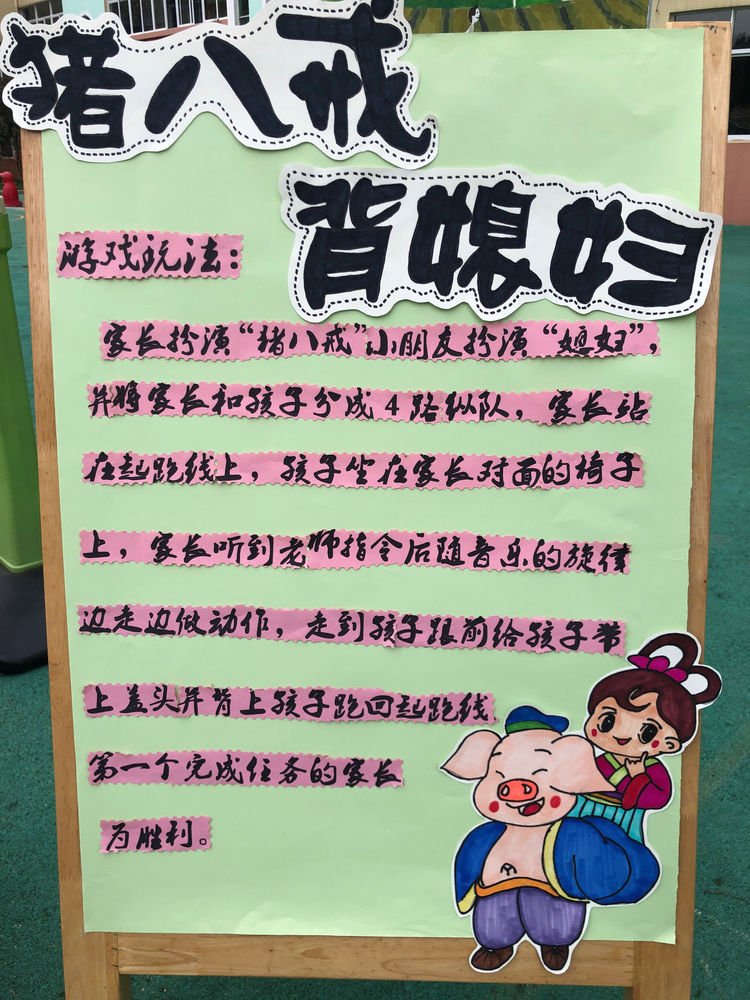 猪八戒
背媳妇
游戏玩法：
家长扮演“猪八戒”小朋友扮演“媳妇”，
并将家长和孩子分成4路纵队，家长站
在起跑线上，孩子坐在家长对面的椅子
上，家长听到老师指令后随音乐的旋律
边走边做动作，走到孩子跟前给孩子带
上盖头并背上孩子跑回起跑线
第一个完成任务的家长
为胜利。